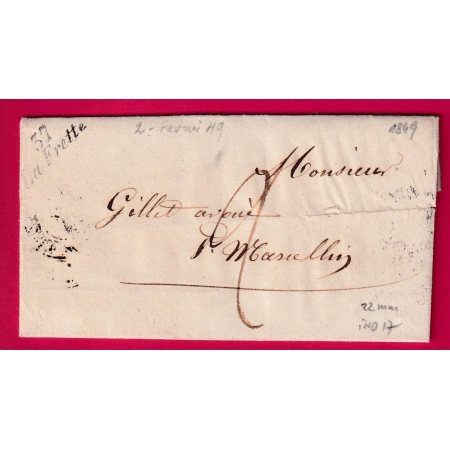 37
La Frette
2 - Fevrier 49
1849
Monsieur
Gillet avoué
St Marcellin
2
22 mm
IND 17